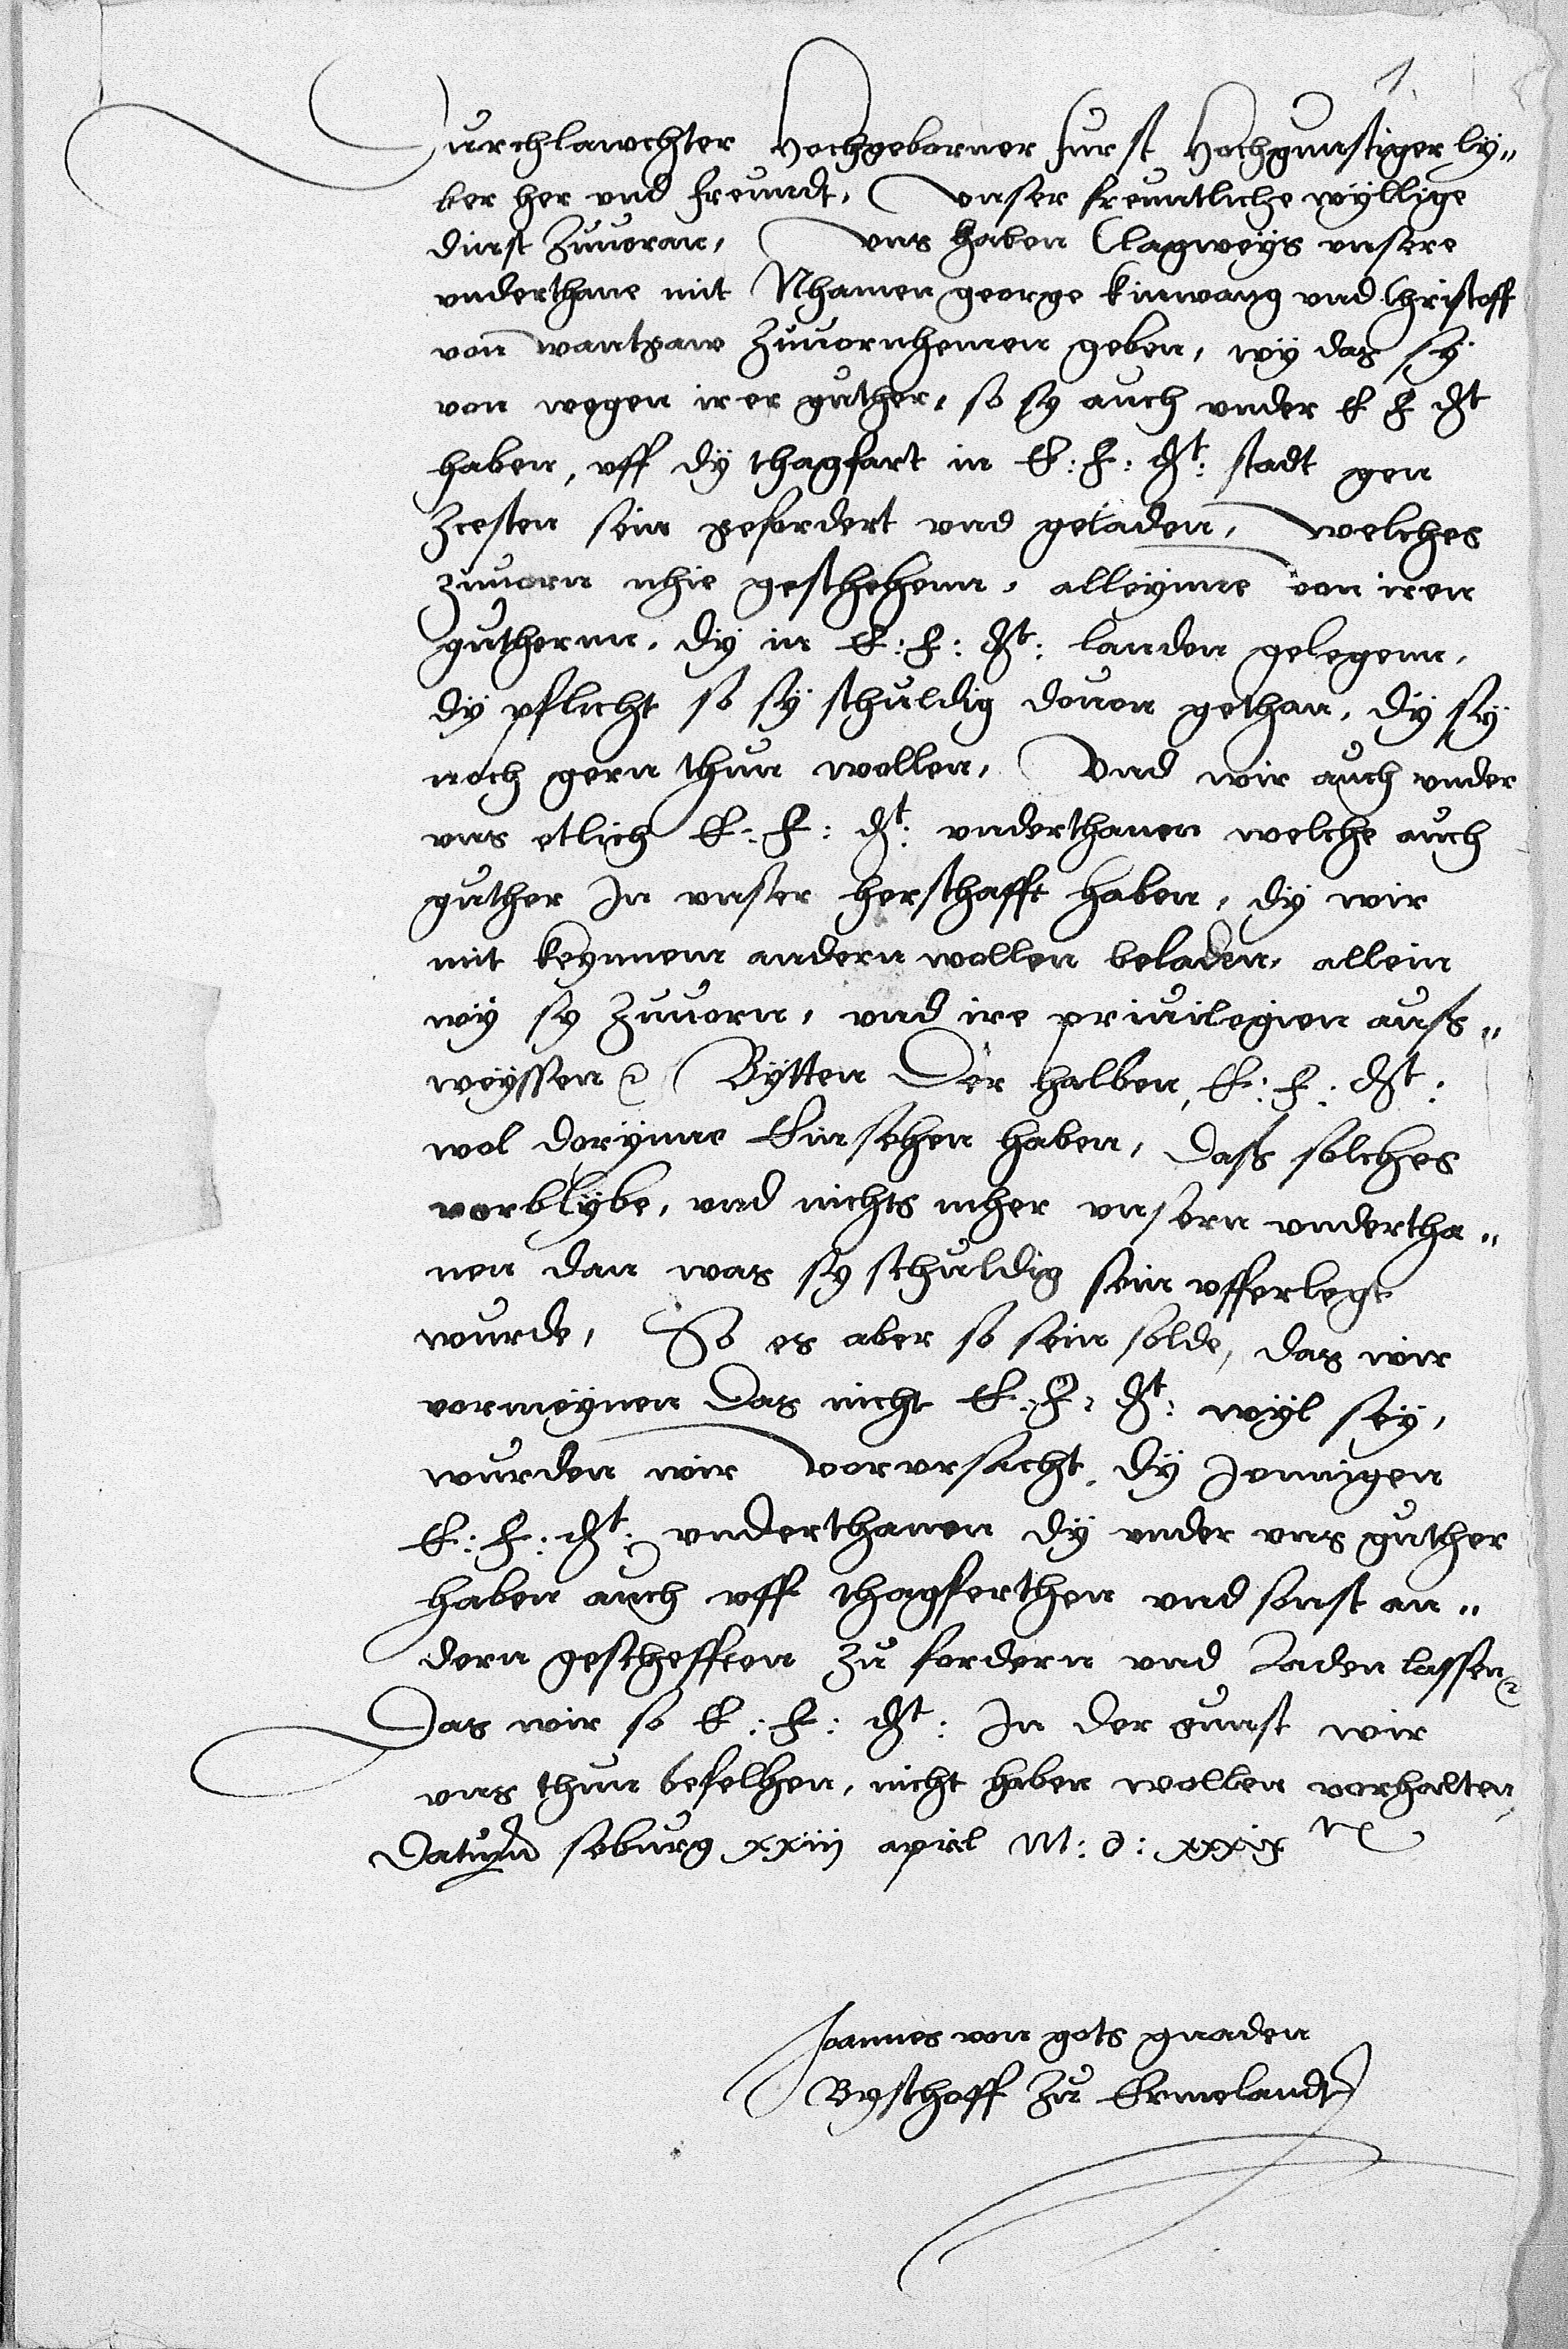 Durchlawchter Hochgeborner furst Hochgunstiger ly„
ber her vnd freundt, vnser freuntliche wyllige
dinst zuuoran, vns haben Clagweys vnsere
vnderthane mit Nhamen george kinwang vnd Christoff
von wantgaw zuuornhemen geben, wy das sy
von wegen irer guther, so sy auch vnder E F Dt
haben, vff dy thagfart in E: F: Dt: stadt gen
Resten sein gefordert vnd geladen, welches
zuuorn nhie geschehenn, alleynne von iren
guthernn, dy in E: F: Dt: landen gelegenn,
dy pflicht so sy schuldig douon gethan, dy sy
noch gern thun wollen, Vnd wir auch vnder
vns etlich E: F: Dt: vnderthanen welche auch
guther In vnser herschafft haben, dy wir
mit keynnem andern wollen beladen, allein
wy sy zuuorn, vnd ire priuilegien auss„
weyssen Bytten Der halben, E: F: Dt:
wol dorynne Einsehen haben, dass solches
vorblybe, vnd nichts mher vnsern vndertha„
nen dan was sy schuldig sein vfferlegt
wurde, So es aber so sein solde, das wir
vormeynen das nicht E: F: Dt: wyl sey,
wurden wir vorvrsacht, dy Jennigen
E: F: Dt: vnderthanen dy vnder vns guther
haben auch vff thagferthen vnd sonst an„
dern geschefften zu fordern vnd Laden lassen
Das wir so E: F: Dt: In der gunst wir
vns thun befelhen, nicht haben wollen vorhalten,
Datum seburg xxiij april M: d: xxxix
Joannes von gots gnaden
Byschoff zu Ermelandt